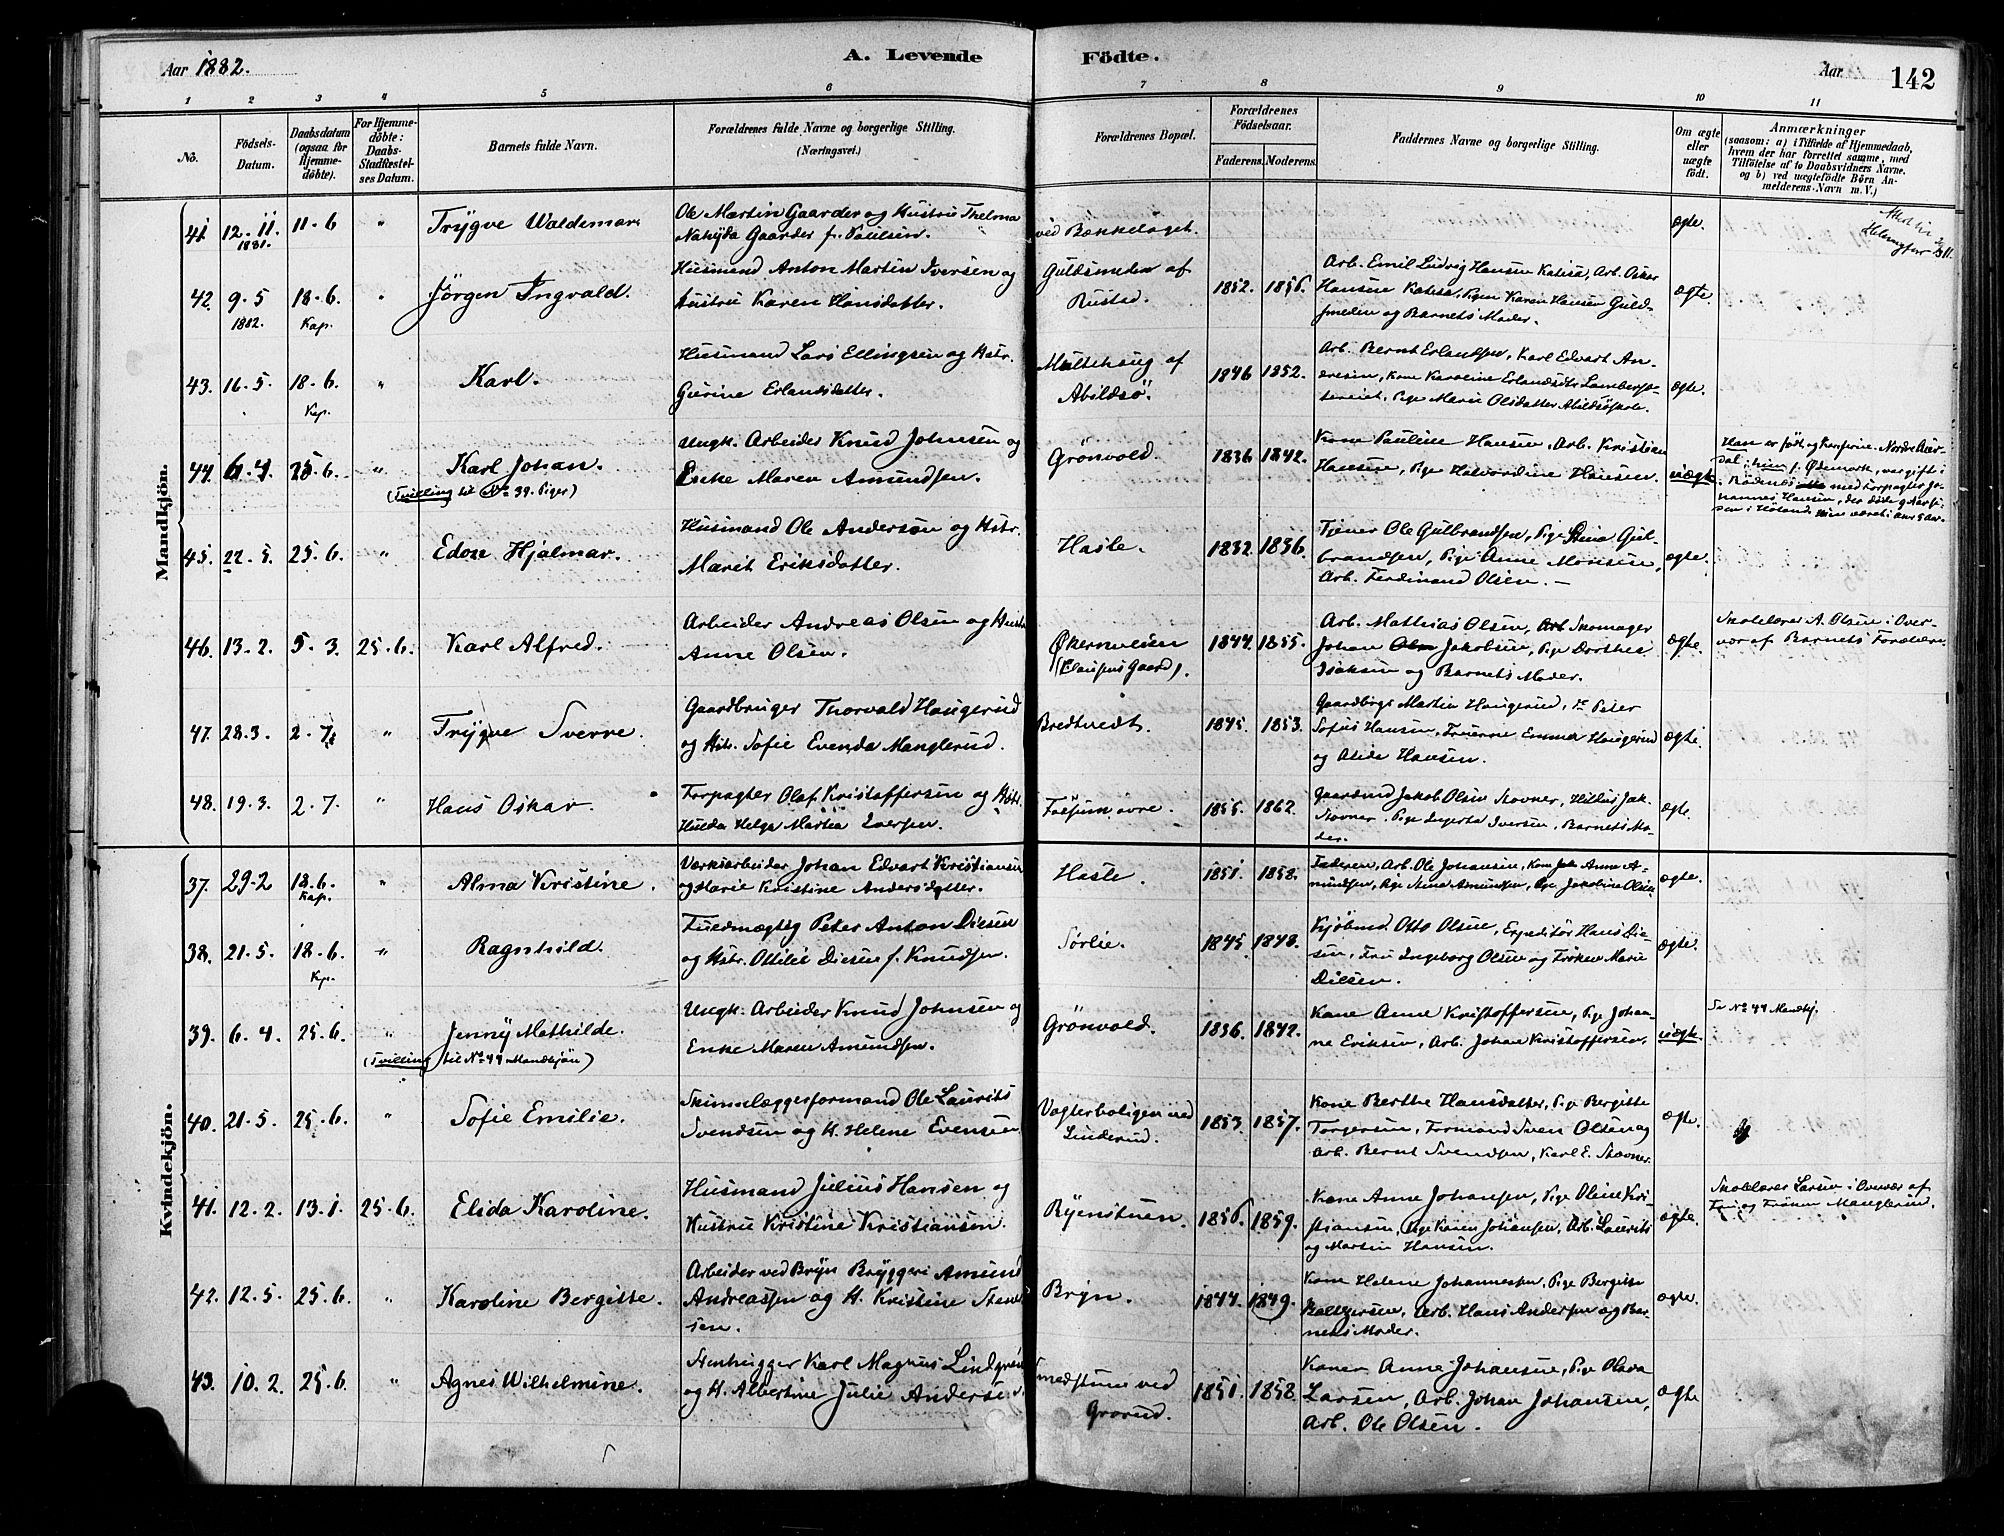 Aar 1882.
A. Levende Födte.
Aar
142
1 2 3 4 5 6 7 8 9 10 11
No.
Födsels-Datum.
Daabsdatum (ogsaa for Hjemme-döbte).
For Hjemme-döbte: Daabs-Stadfæstel-ses Datum.
Barnets fulde Navn.
Forældrenes fulde Navne og borgerlige Stilling.
(Næringsvei.)
Forældrenes Bopæl.
Forældrenes Födselsaar.
Faderens. Moderens.
Faddernes Navne og borgerlige Stilling.
Om ægte eller uægte födt.
Anmærkninger
(saasom: a) i Tilfælde af Hjemmedaab,
hvem der har forrettet samme, med
Tilföielse af to Daabsvidners Navne,
og b) ved uægtefödte Börn An-
melderens Navn m. V.)
Mandkjön.
41. 12.11. 1881. 11-6 " Trÿgve Waldemar.
Ole Martin Gaarder og Hustru Thelma
Gaarder f. Paulsen.
ved Bækkelaget.
ægte.
42. 9-5 1882. 18-6. Kap. " Jörgen Ingvald.
Husmand Anton Martin Iversen og
Hustru Karen Hansdatter.
Guldsmeden af
Rustad.
1852. 1856.
Arb. Emil Ludvig Hansen Katisa, Arb. Oskar
Hansen Katisa, Pigen Karen Hansen Guld-
smeden og Barnets Moder.
ægte.
43. 16-5. 18-6. Kap. " Karl.
Husmand Lars Ellingsen og Hstr.
Gurine Erlandsdatter.
Multehaug af
Abildsø
1846 1852.
Arb. Bernt Erlandsen, Karl Edvart An-
dresen, Kone Karoline Erlandsdtr
Pige Marie Olsdatter Abildsøskole.
ægte.
44. 6-4. 25-6. " Karl Johan.
(Tvilling til No 39. Piger)
Ungk. Arbeider Knud Johnsen og
Enke Maren Amundsen.
Grönvold.
1836 1842.
Kone Pauline Hansen, Arb. Kristian
Hansen, Pige Halvardine Hansen.
uægte
Han er født og Konfirm.
45. 22-5. 25-6. " Edon Hjalmar.
Husmand Ole Andersen og Hstr.
Marit Eriksdatter.
Hasle.
1832. 1836.
Tjener Ole Gulbrandsen, Pige Stina Gul-
brandsen, Pige Anne Monsen,
Arb. Ferdinand Olsen. —
ægte.
46. 13-2. 5-3. 25-6. Karl Alfred.
Arbeider Andreas Olsen og Hustr
Anne Olsen.
Økernveien
(Clausens Gaard).
1844. 1855.
Arb. Mathias Olsen, Skomager
Johan Jakobsen, Pige Dorthea
Isaksen og Barnets Moder.
ægte.
Skolelærer A. Olsen i Over-
vær af Barnets Forældre.
47. 28.3. 2-7. " Trÿgve Sverre.
Gaardbruger Thorvald Haugerud
og Hstr. Sofie Evenda Manglerud.
Bredtvedt.
1845. 1853.
Gaardbrgr Martin Haugerud, Peter
Sofus Hansen, Fruerne Emma Haugerud
og Alida Hansen.
ægte.
48. 19.3. 2-7. " Hans Oskar.
Forpagter Olaf Kristoffersen og Hstr.
Hulda Helga Martia Iversen.
Fossum övre.
1855. 1862.
Gaardmd Jakob Olsen Stovner, Hustru Jak.
Stovner, Pige Iversen, Barnets Mo-
der.
ægte.
Kvindekjön.
37. 29-2 18-6. Kap. " Alma Kristine.
Værksarbeider Johan Edvart Kristiansen
og Marie Kristine Andersdatter.
Hasle.
1851. 1858.
Faderen, Arb. Ole Johansen, Kone Anne A-
mundsen, Pige Stina Amundsen, Pige Jakoline Olsen
ægte.
38. 21.5. 18-6. Kp. " Ragnhild.
Fuldmægtig Peter Anton Diesen
og Hstr. Ottilie Diesen f. Knudsen.
Sörlie.
1845. 1848.
Kjöbmd Otto Olsen, Expeditör Hans Die-
sen, Fru Ingeborg Olsen og Fröken Marie
Diesen.
ægte.
39. 6.4. 25.6. " Jenny Mathilde.
(Tvilling til No 44 Mandkjön)
Ungk. Arbeider Knud Johnsen og
Enke Maren Amundsen.
Grönvold.
1836. 1842.
Kone Anne Kristoffersen, Pige Johan-
ne Eriksen, Arb. Johan Kristoffersen.
uægte.
Se No 44 Mandkj.
40. 21.5. 25-6. " Sofie Emilie.
Skinnelæggerformand Ole Laurits
Svendsen og H. Helene Evensen.
Vogterboligen ved
Linderud.
1853. 1857.
Kone Berthe Hansdatter, Pige Bergitte
Torgersen, Formand Sven Olsen og
Arb. Bernt Svendsen, Karl E. Stovner.
ægte.
41. 12.2. 13.1. 25-6. Elida Karoline.
Husmand Julius Hansen og
Hustru Kristine Kristiansen.
Ryenstuen.
1856. 1859.
Kone Anne Johansen, Pige Oline Kri-
stiansen, Pige Karen Johansen, Arb. Laurits
og Martin Hansen.
ægte.
Skolelærer Larsen i Overvær af
Fru og Fröken Manglerud.
42. 12.5. 25.6. " Karoline Bergitte.
Arbeider ved Bryn Bryggeri Amund
Andreassen og H. Kristine
sen.
Bryn.
1844. 1849.
Kone Helene Johannesen, Pige Bergitte
Arb. Hans Andersen og Bar-
nets Moder.
ægte.
43. 10.2. 25.6. " Agnes Wilhelmine.
Stenhugger Karl Magnus Lindgren
og H. Albertine Julie Andersen.
Smedstuen ved
Grorud.
1851. 1858.
Konen Anne Johansen, Pige Olava
Larsen, Arb. Johan Johansen,
Arb. Ole Olsen.
ægte